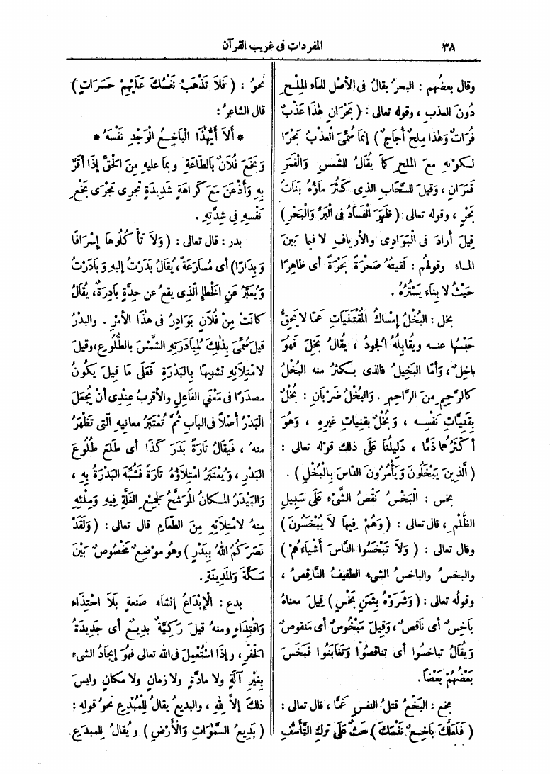 ٣٨
المفردات فى غريب القرآن
وقال بعضُهم : البحرُ يقالُ فى الأصْلِ للماء المِلْحِ
دُونَ العذبِ ، وقوله تعالى : ( بَحْرَانِ هٰذَا عَذْبٌ
فُرَاتٌ وَهٰذَا مِلْحٌ أُجَاجٌ ) إنما سُمِّىَ العذبُ بَحْرًا
لكونِهِ معَ المِلْحِ كما يُقالُ للشَّمْسِ والقَمَرِ
قَمَرَانِ ، وقيلَ للسَّحَابِ الذِى كَثُرَ ماؤُهُ بَناتُ
بَحْرٍ ، وقوله تعالى : ( ظَهَرَ الْفَسَادُ فِى الْبَرِّ وَالْبَحْرِ )
قِيلَ أرادَ فى البَوَادِى والأريافِ لا فيما بَيْنَ
الماء وقولهُم : لَقِيتُهُ صَحْرَةً بَحْرَةً أى ظاهِرًا
حَيْثُ لا بِناء يَسْتُرُهُ .
بخل : البُخْلُ إمساكُ المُقْتَنَياتِ عَمَّا لا يَحِقُّ
حَبْسُها عنه ويقابِلُهُ الجُودُ ، يُقالُ بَخِلَ فهو
باخِلٌ ، وأمَّا البخيلُ فالذى يَكْثُرُ منه البُخْلُ
كالرَّحيمِ مِنَ الرَّاحِمِ . والبُخْلُ ضَرْبانِ : بُخْلٌ
بِقِنْيَاتِ نَفْسِهِ ، وبُخْلٌ بِقِنْيَاتِ غيرِهِ ، وَهُوَ
أكْثَرُهُما ذَمًّا ، دَلِيلُنا عَلَى ذلكَ قوله تعالى :
( الَّذِينَ يَبْخَلُونَ وَيَأْمُرُونَ النَّاسَ بِالْبُخْلِ ) .
بخس : البَخْسُ نَقْصُ الشَّىْءِ عَلَى سَبِيلِ
الظُّلْمِ ، قال تعالى : ( وَهُمْ فِيهَا لاَ يُبْخَسُونَ )
وقال تعالى : ( وَلاَ تَبْخَسُوا النَّاسَ أَشْيَاءَهُمْ )
والبخسُ والباخسُ الشىء الطفيفُ النَّاقِصُ ،
وقوله تعالى : ( وَشَرَوْهُ بِثَمَنٍ بَخْسٍ ) قيلَ معناهُ
باخِسٌ أى ناقِصٌ ، وقيلَ مَبْخُوسٌ أى منقوصٌ
ويُقالُ تباخَسُوا أى تناقَصُوا وتَغابَنُوا فبَخَسَ
بَعْضُهُمْ بَعْضًا .
بخع : البَخْعُ قتلُ النفس غَمًّا ، قال تعالى :
( فَلَعَلَّكَ بَاخِعٌ نَفْسَكَ ) حَثٌّ عَلَى تَرْكِ التَّأَسُّفِ
نحوُ : ( فَلاَ تَذْهَبْ نَفْسُكَ عَلَيْهِمْ حَسَرَاتٍ )
قال الشاعرُ :
* ألاَ أيُّهٰذَا الباخِعُ الوَجْدِ نَفْسَهُ *
وبَخَعَ فُلاَنٌ بالطَّاعَةِ وبما عليهِ مِنَ الحَقِّ إذَا أقَرَّ
بِهِ وَأَذْعَنَ مَعَ كَرَاهَةٍ شَدِيدَةٍ تَجْرِى مَجْرَى بَخْعِ
نَفْسِهِ فى شِدَّتِهِ .
بدر : قال تعالى : ( وَلاَ تَأْكُلُوهَا إِسْرَافًا
وَبِدَارًا ) أى مُسارَعَةً ، يُقالُ بَدَرْتُ إليهِ وبَادَرْتُ
ويُعَبَّرُ عَنِ الخَطَإِ الَّذِى يَقَعُ عن حِدَّةٍ بادِرَةٌ ، يُقالُ
كانَتْ مِنْ فُلاَنٍ بَوَادِرُ فى هٰذَا الأمْرِ . والبدْرُ
قيلَ سُمِّىَ بذلكَ لمُبادَرَتِهِ الشَّمْسَ بالطُّلُوعِ ، وقيلَ
لامتِلائِهِ تشبيهاً بالبَدْرَةِ فَعَلَى ما قيلَ يَكُونُ
مصدَرًا فى مَعْنَى الفاعِلِ والأقربُ عِنْدِى أنْ يُجْعَلَ
البَدْرُ أصْلاً فى البابِ ثُمَّ تُعْتَبَرُ معانيهِ الَّتى تَظْهَرُ
منه ، فيُقالُ تارَةً بَدَرَ كَذَا أى طَلَعَ طُلُوعَ
البَدْرِ ، ويُعْتَبَرُ امتِلاؤُهُ تارَةً فَشُبِّهَ البَدْرَةُ بِهِ ،
والبَيْدَرُ المكانُ المُرَشَّحُ لِجَمْعِ الغَلَّةِ فيهِ ومِلْئِهِ
مِنْهُ لامتِلائِهِ مِنَ الطَّعَامِ قال تعالى : ( وَلَقَدْ
نَصَرَكُمُ اللهُ بِبَدْرٍ ) وهُوَ موضِعٌ مَخْصُوصٌ بَيْنَ
مَكَّةَ وَالمَدِينَةِ .
بدع : الإِبْدَاعُ إنشَاء صَنْعَةٍ بِلاَ احْتِذَاءٍ
وَاقْتِدَاءٍ ومنه قيلَ رَكِيَّةٌ بَدِيعٌ أى جَدِيدَةُ
الحَفْرِ ، وإذَا اسْتُعْمِلَ فى اللهِ تعالى فهُوَ إيجادُ الشىء
بِغَيْرِ آلَةٍ ولا مادَّةٍ ولا زَمانٍ ولا مكانٍ وليسَ
ذلكَ إلاَّ لِلّهِ ، والبديعُ يقالُ للمُبْدِعِ نحوُ قوله :
( بَدِيعُ السَّمٰوَاتِ وَالأَرْضِ ) ويُقالُ للمبدَعِ